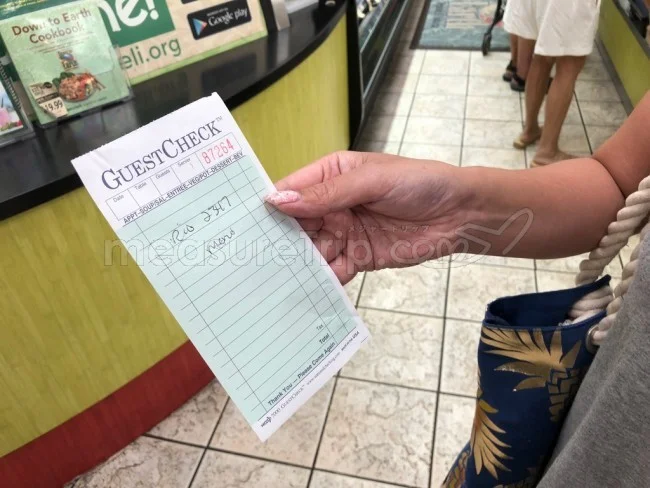 Down to Earth
Cookbook
$9.99
e!
eli.org
Google play
GUESTCHECK™
Date
Table
Guests
Server
87264
APPT-SOUP/SAL-ENTREE-VEG/POT-DESSERT-BEV
2347
Tax
Total
Thank You — Please Come Again
measureTrip.com